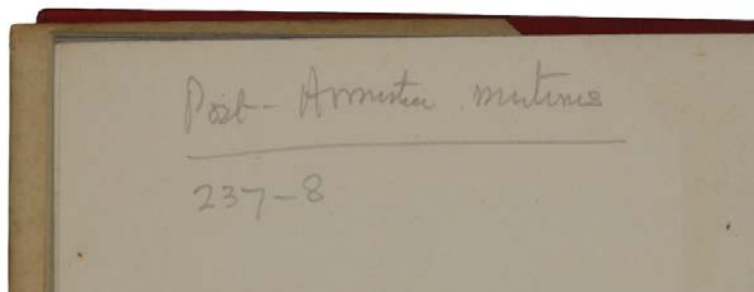 Post-Armistice mutinies
237-8